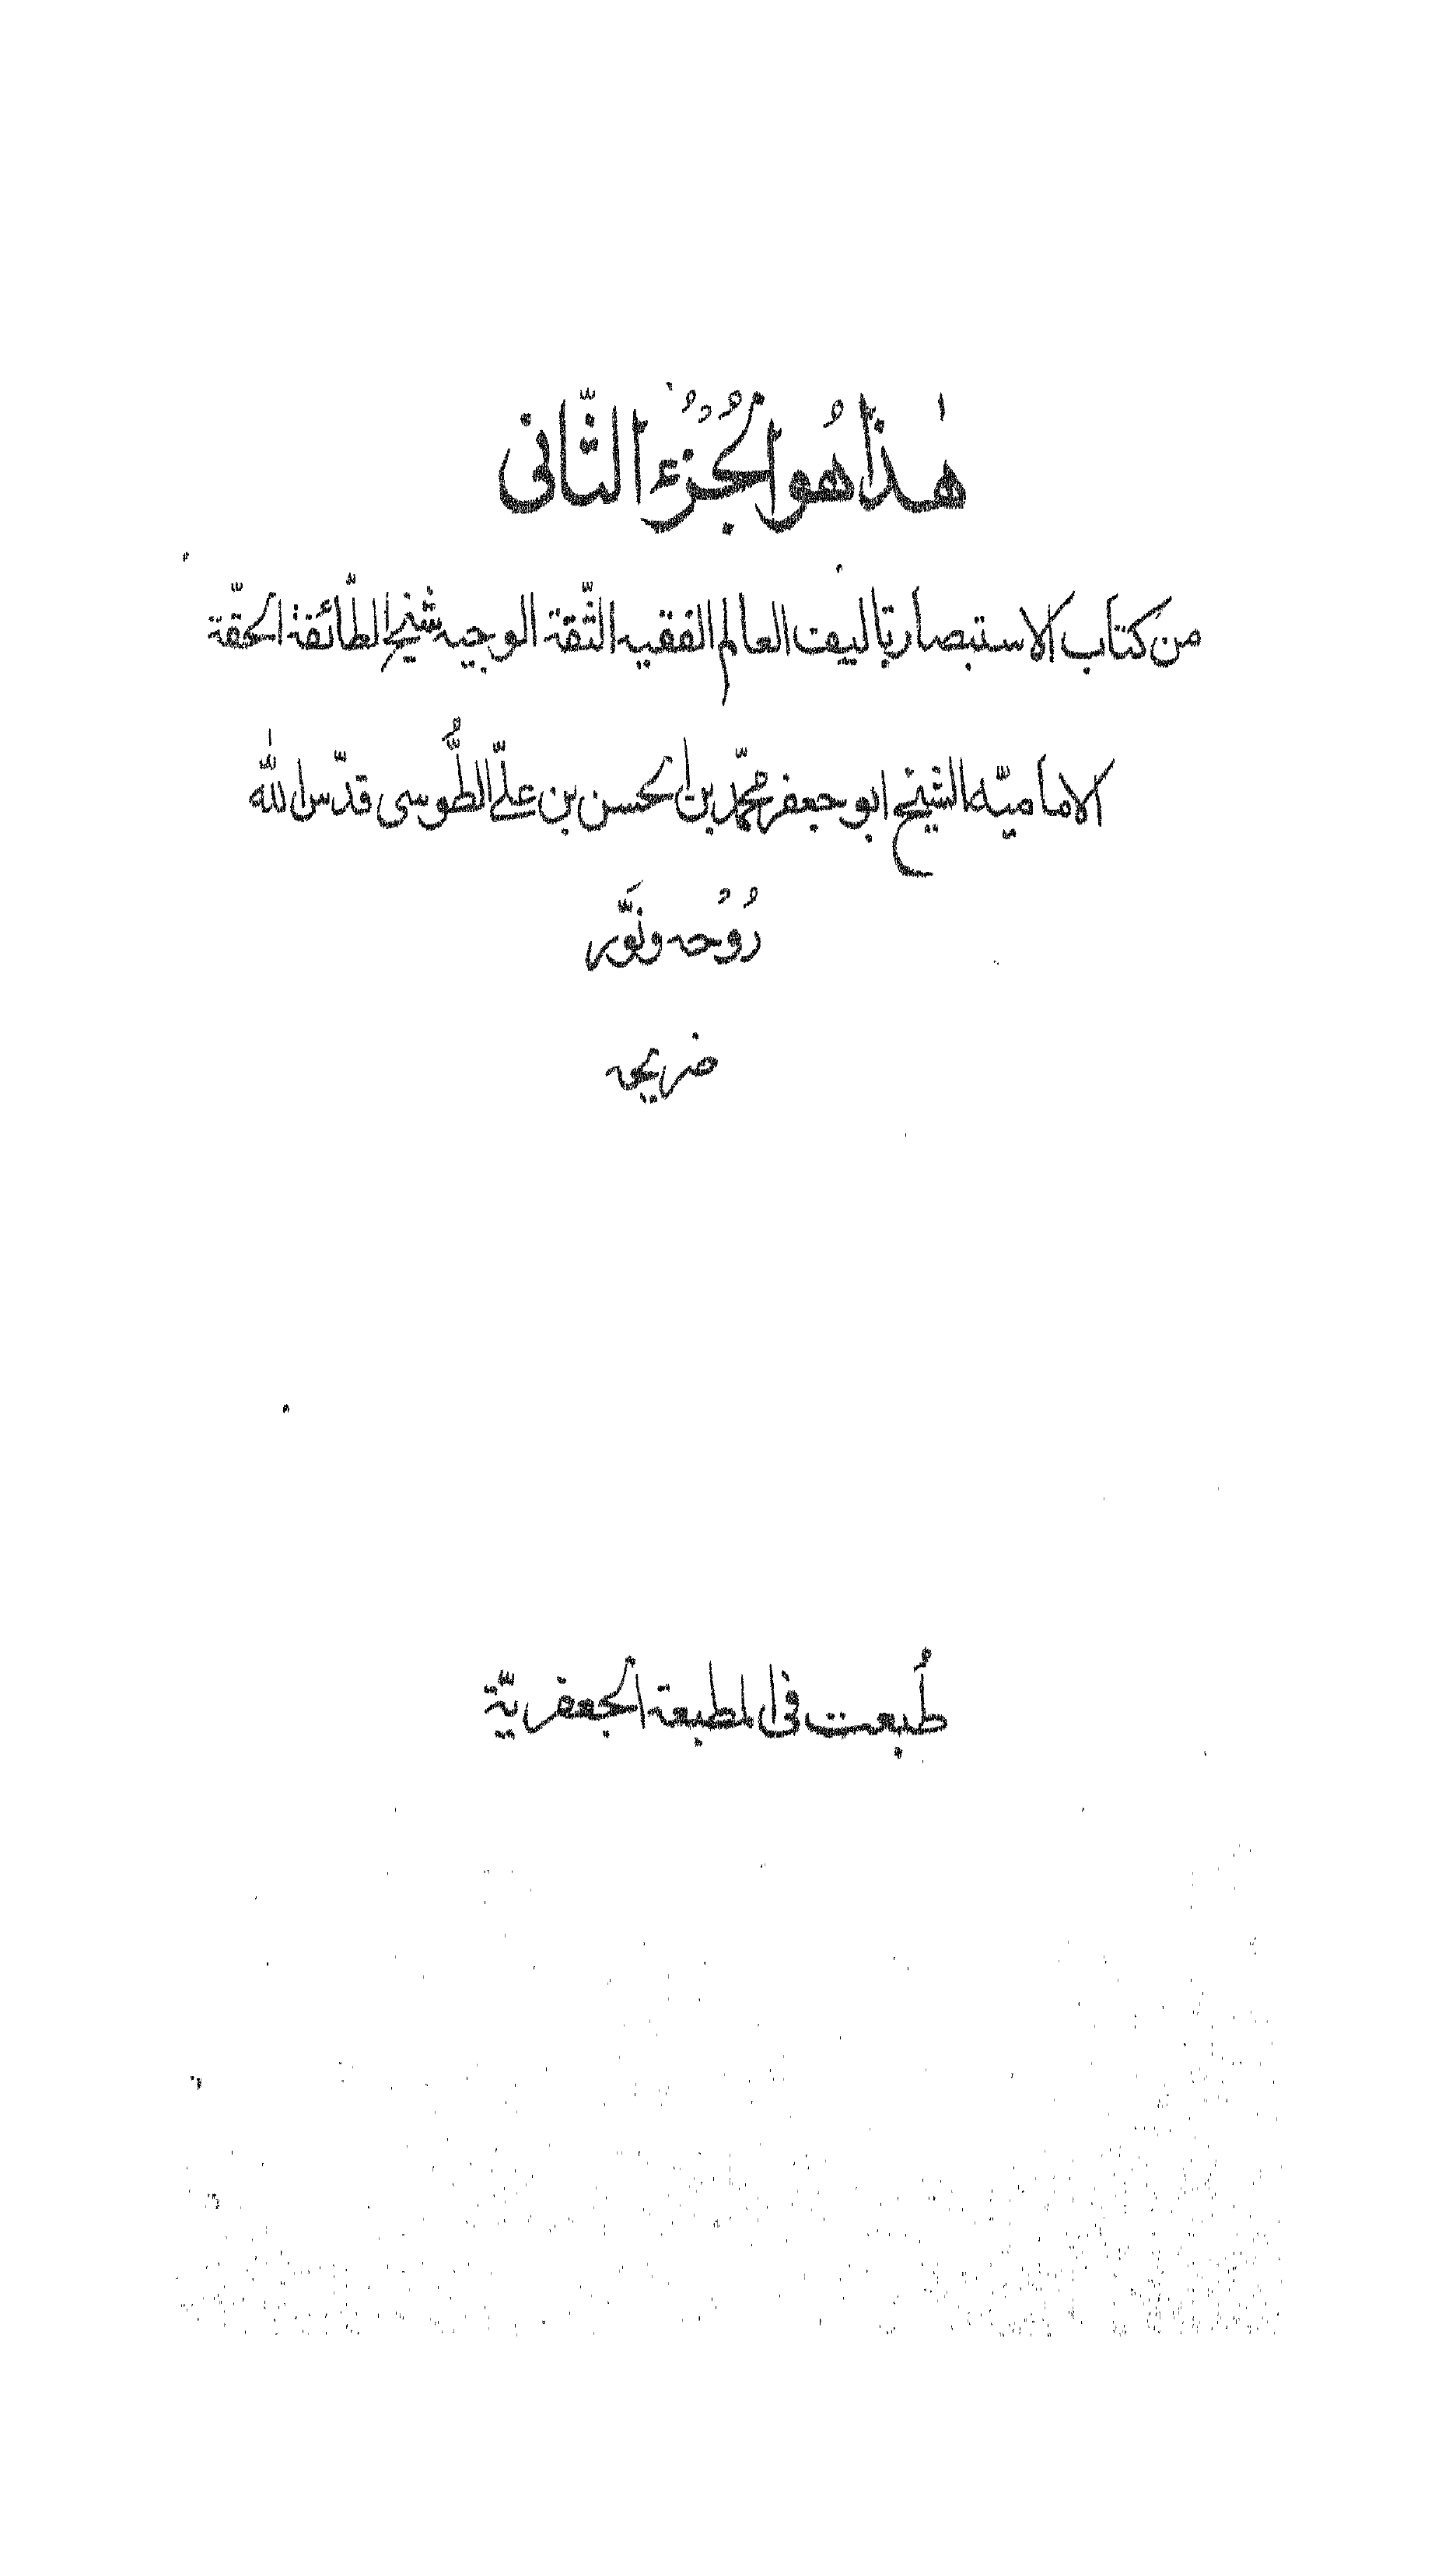 هٰذا هُو الجُزُء الثّانى
من كتاب الاستبصار تاليف العالم الفقيه الثّقة الوجيه شيخ الطّائفة الحقّة
الاماميّه الشيخ ابو جعفر محمّد بن الحسن بن علىّ الطُّوسى قدّس اللّٰه
رُوُحه ونَّور
ضريحه
طُبعت فى المطبعة الجعفريّة